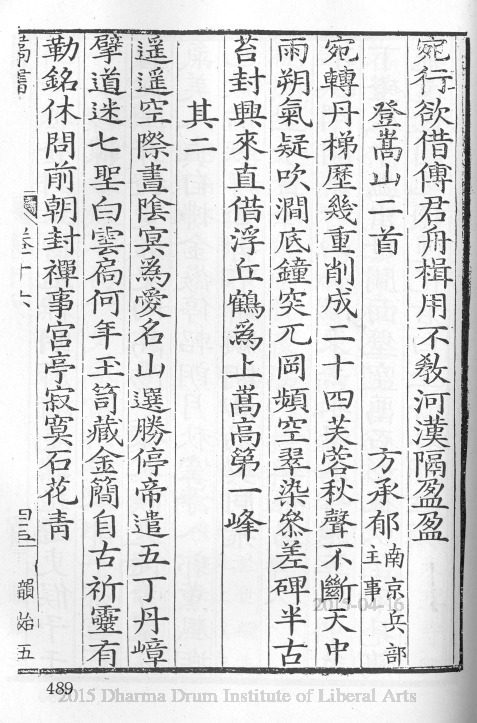 宛行欲借傅君舟楫用不教河漢隔盈盈
登嵩山二首
方承郁南京兵部主事
宛轉丹梯歷幾重削成二十四芙蓉秋聲不斷天中
雨朔氣疑吹澗底鐘突兀岡頻空翠染參差碑半古
苔封興來直借浮丘鶴爲上嵩高第一峰
其二
遥遥空際晝陰冥爲愛名山選勝停帝遣五丁丹嶂
擘道迷七聖白雲扃何年玉笥藏金簡自古祈靈有
勒銘休問前朝封禪事宮亭寂寞石花青
嵩書
卷十六
四三
韻始五
2015-04-16
489
2015 Dharma Drum Institute of Liberal Arts